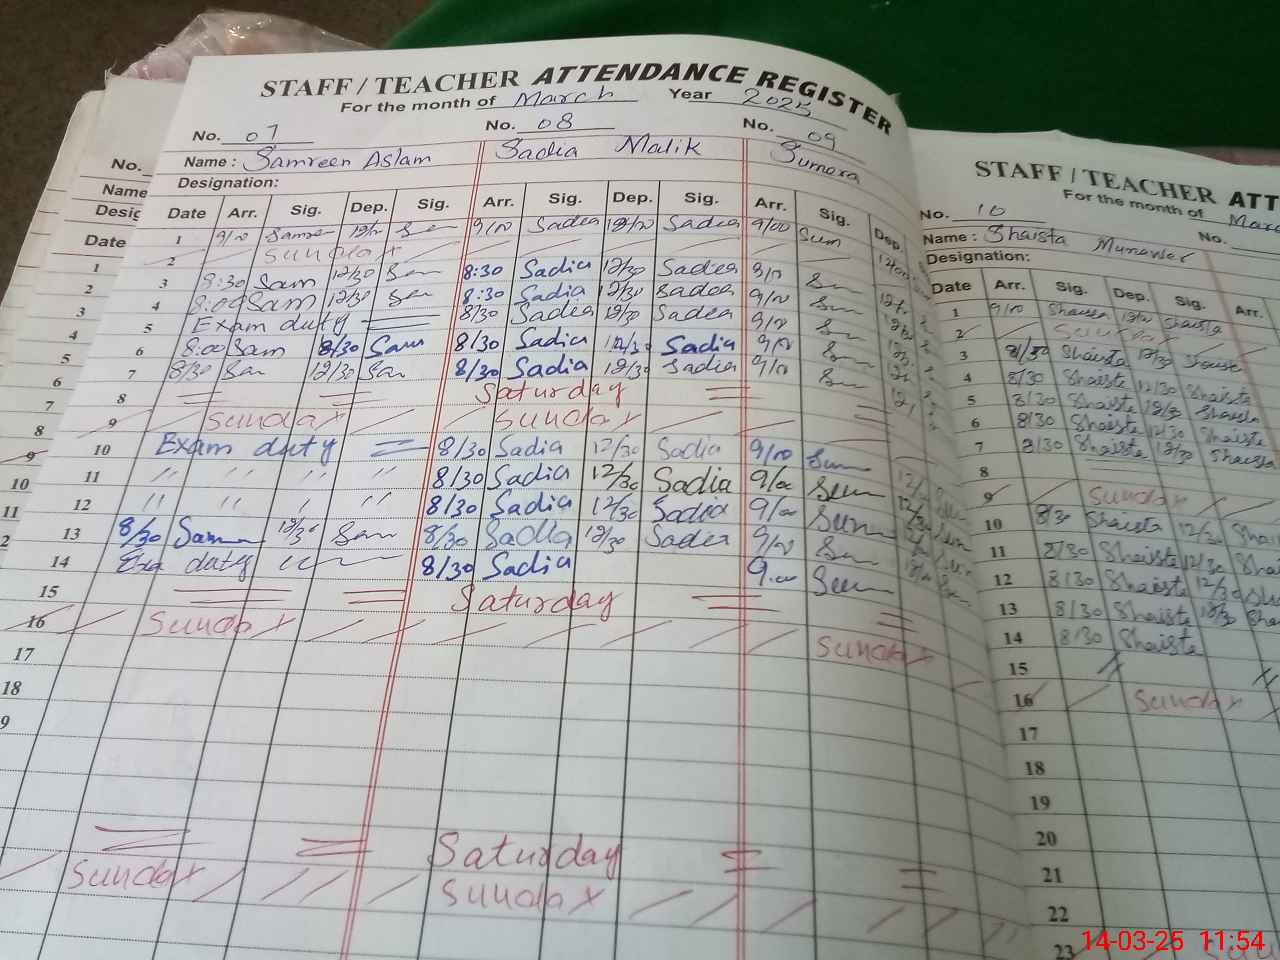 STAFF / TEACHER ATTENDANCE REGISTER
For the month of March Year 2025
No. 07 No. 08 No. 09
Name : Samreen Aslam Sadia Malik Sumera
Designation:
Date Arr. Sig. Dep. Sig. Arr. Sig. Dep. Sig. Arr. Sig. Dep.
1 9/00 Sam 12/00 Sam 9/00 Sadia 12/00 Sadia 9/00 Sum 12/00
2 Sunday
3 8:30 Sam 12/30 Sam 8:30 Sadia 12/30 Sadia 9/00
4 8:00 Sam 12/30 Sam 8:30 Sadia 12/30 Sadia 9/00
5 Exam duty 8/30 Sadia 12/30 Sadia 9/00
6 8:00 Sam 8/30 Sam 8/30 Sadia 12/30 Sadia 9/00
7 8/30 Sam 12/30 Sam 8/30 Sadia 12/30 Sadia 9/00
8 Saturday
9 Sunday Sunday
10 Exam duty 8/30 Sadia 12/30 Sadia 9/00 Sum
11 " " " " 8/30 Sadia 12/30 Sadia 9/00 Sum
12 " " " " 8/30 Sadia 12/30 Sadia 9/00 Sum
13 8/30 Sam 12/30 Sam 8/30 Sadia 12/30 Sadia 9/00
14 Exa duty 8/30 Sadia 9.00 Sum
15 Saturday
16 Sunday Sunday
17
18
Saturday
Sunday Sunday
STAFF / TEACHER ATT
For the month of Marc
No. 10 No.
Name : Shaista Munawer
Designation:
Date Arr. Sig. Dep. Sig. Arr.
1 9/00 Shaista 12/00 Shaista
2 Sunday
3 8/30 Shaista 12/30 Shaista
4 8/30 Shaista 12/30 Shaista
5 8/30 Shaista 12/30 Shaista
6 8/30 Shaista 12/30 Shaista
7 8/30 Shaista 12/30 Shaista
8
9 Sunday
10 8/30 Shaista 12/30 Shai
11 8/30 Shaista 12/30 Sha
12 8/30 Shaista 12/30
13 8/30 Shaista 12/30 Sha
14 8/30 Shaista
15
16 Sunday
17
18
19
20
21
22
23
No.
Name
Desig
Date
1
2
3
4
5
6
7
8
9
10
11
2
14-03-25 11:54